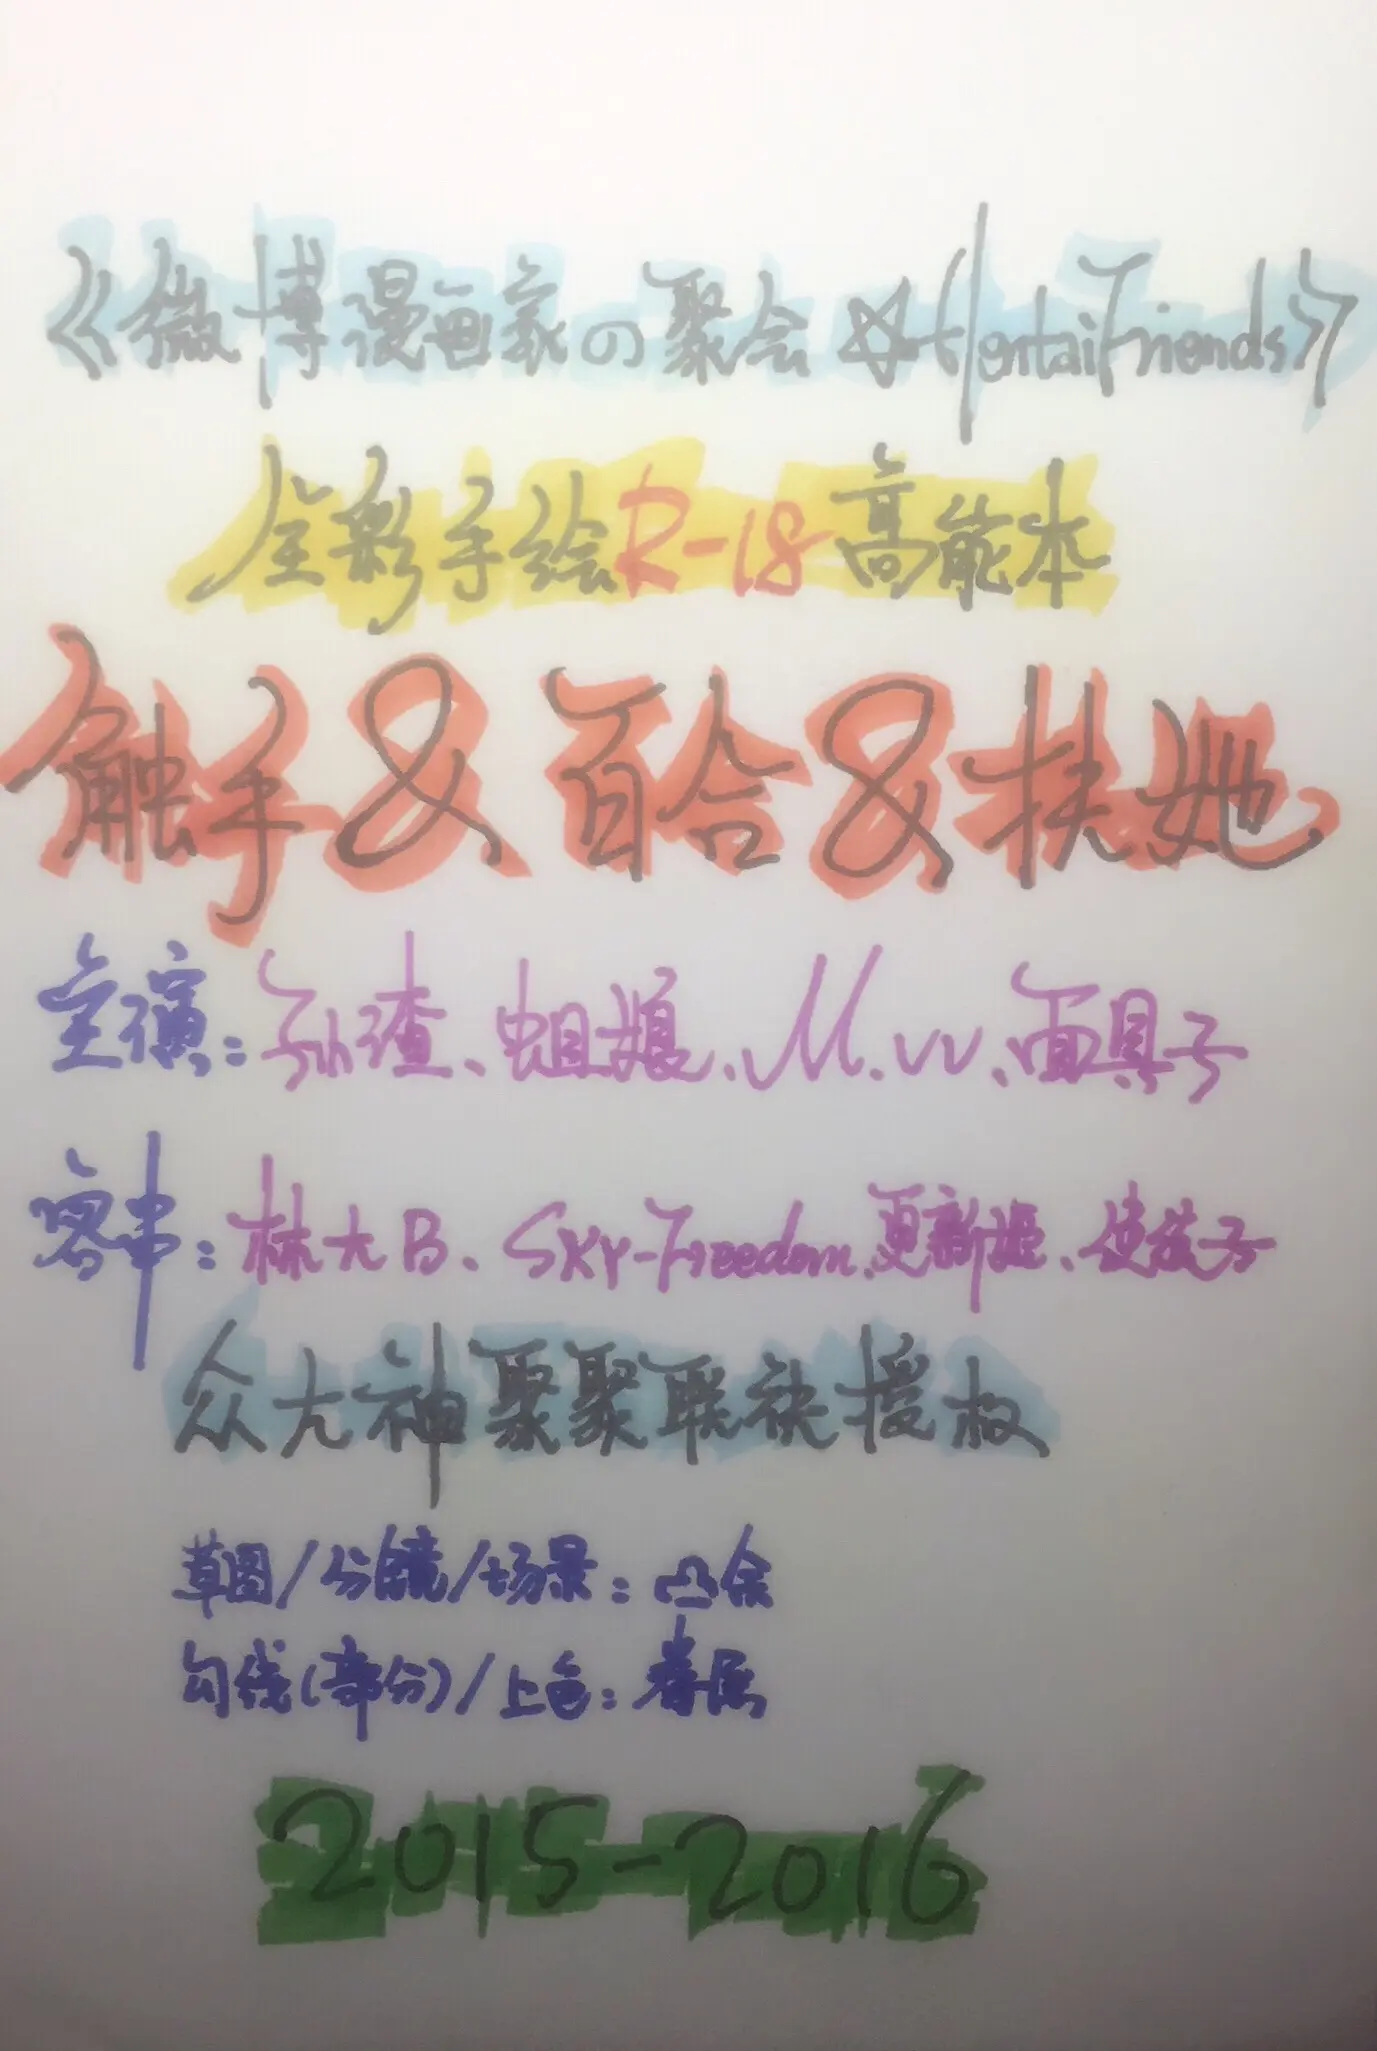 《微博漫画家の聚会☆HentaiFriends》
全彩手绘R-18高能本
触手&百合&扶她
主演：孙渣、蛆娘、M.vv、面具子
客串：林大B、Sky-Freedom、更新姬、使徒子
众大神聚聚联袂授权
草图/分镜/场景：凸余
勾线(部分)/上色：眷属
2015-2016